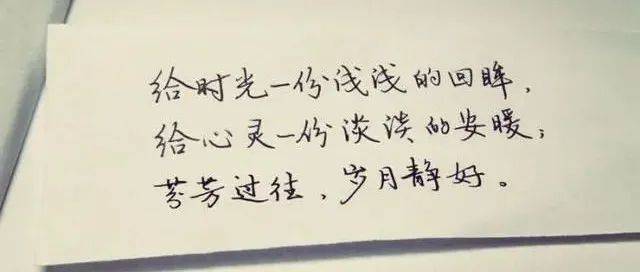 给时光一份浅浅的回眸，
给心灵一份淡淡的安暖；
芬芳过往，岁月静好。